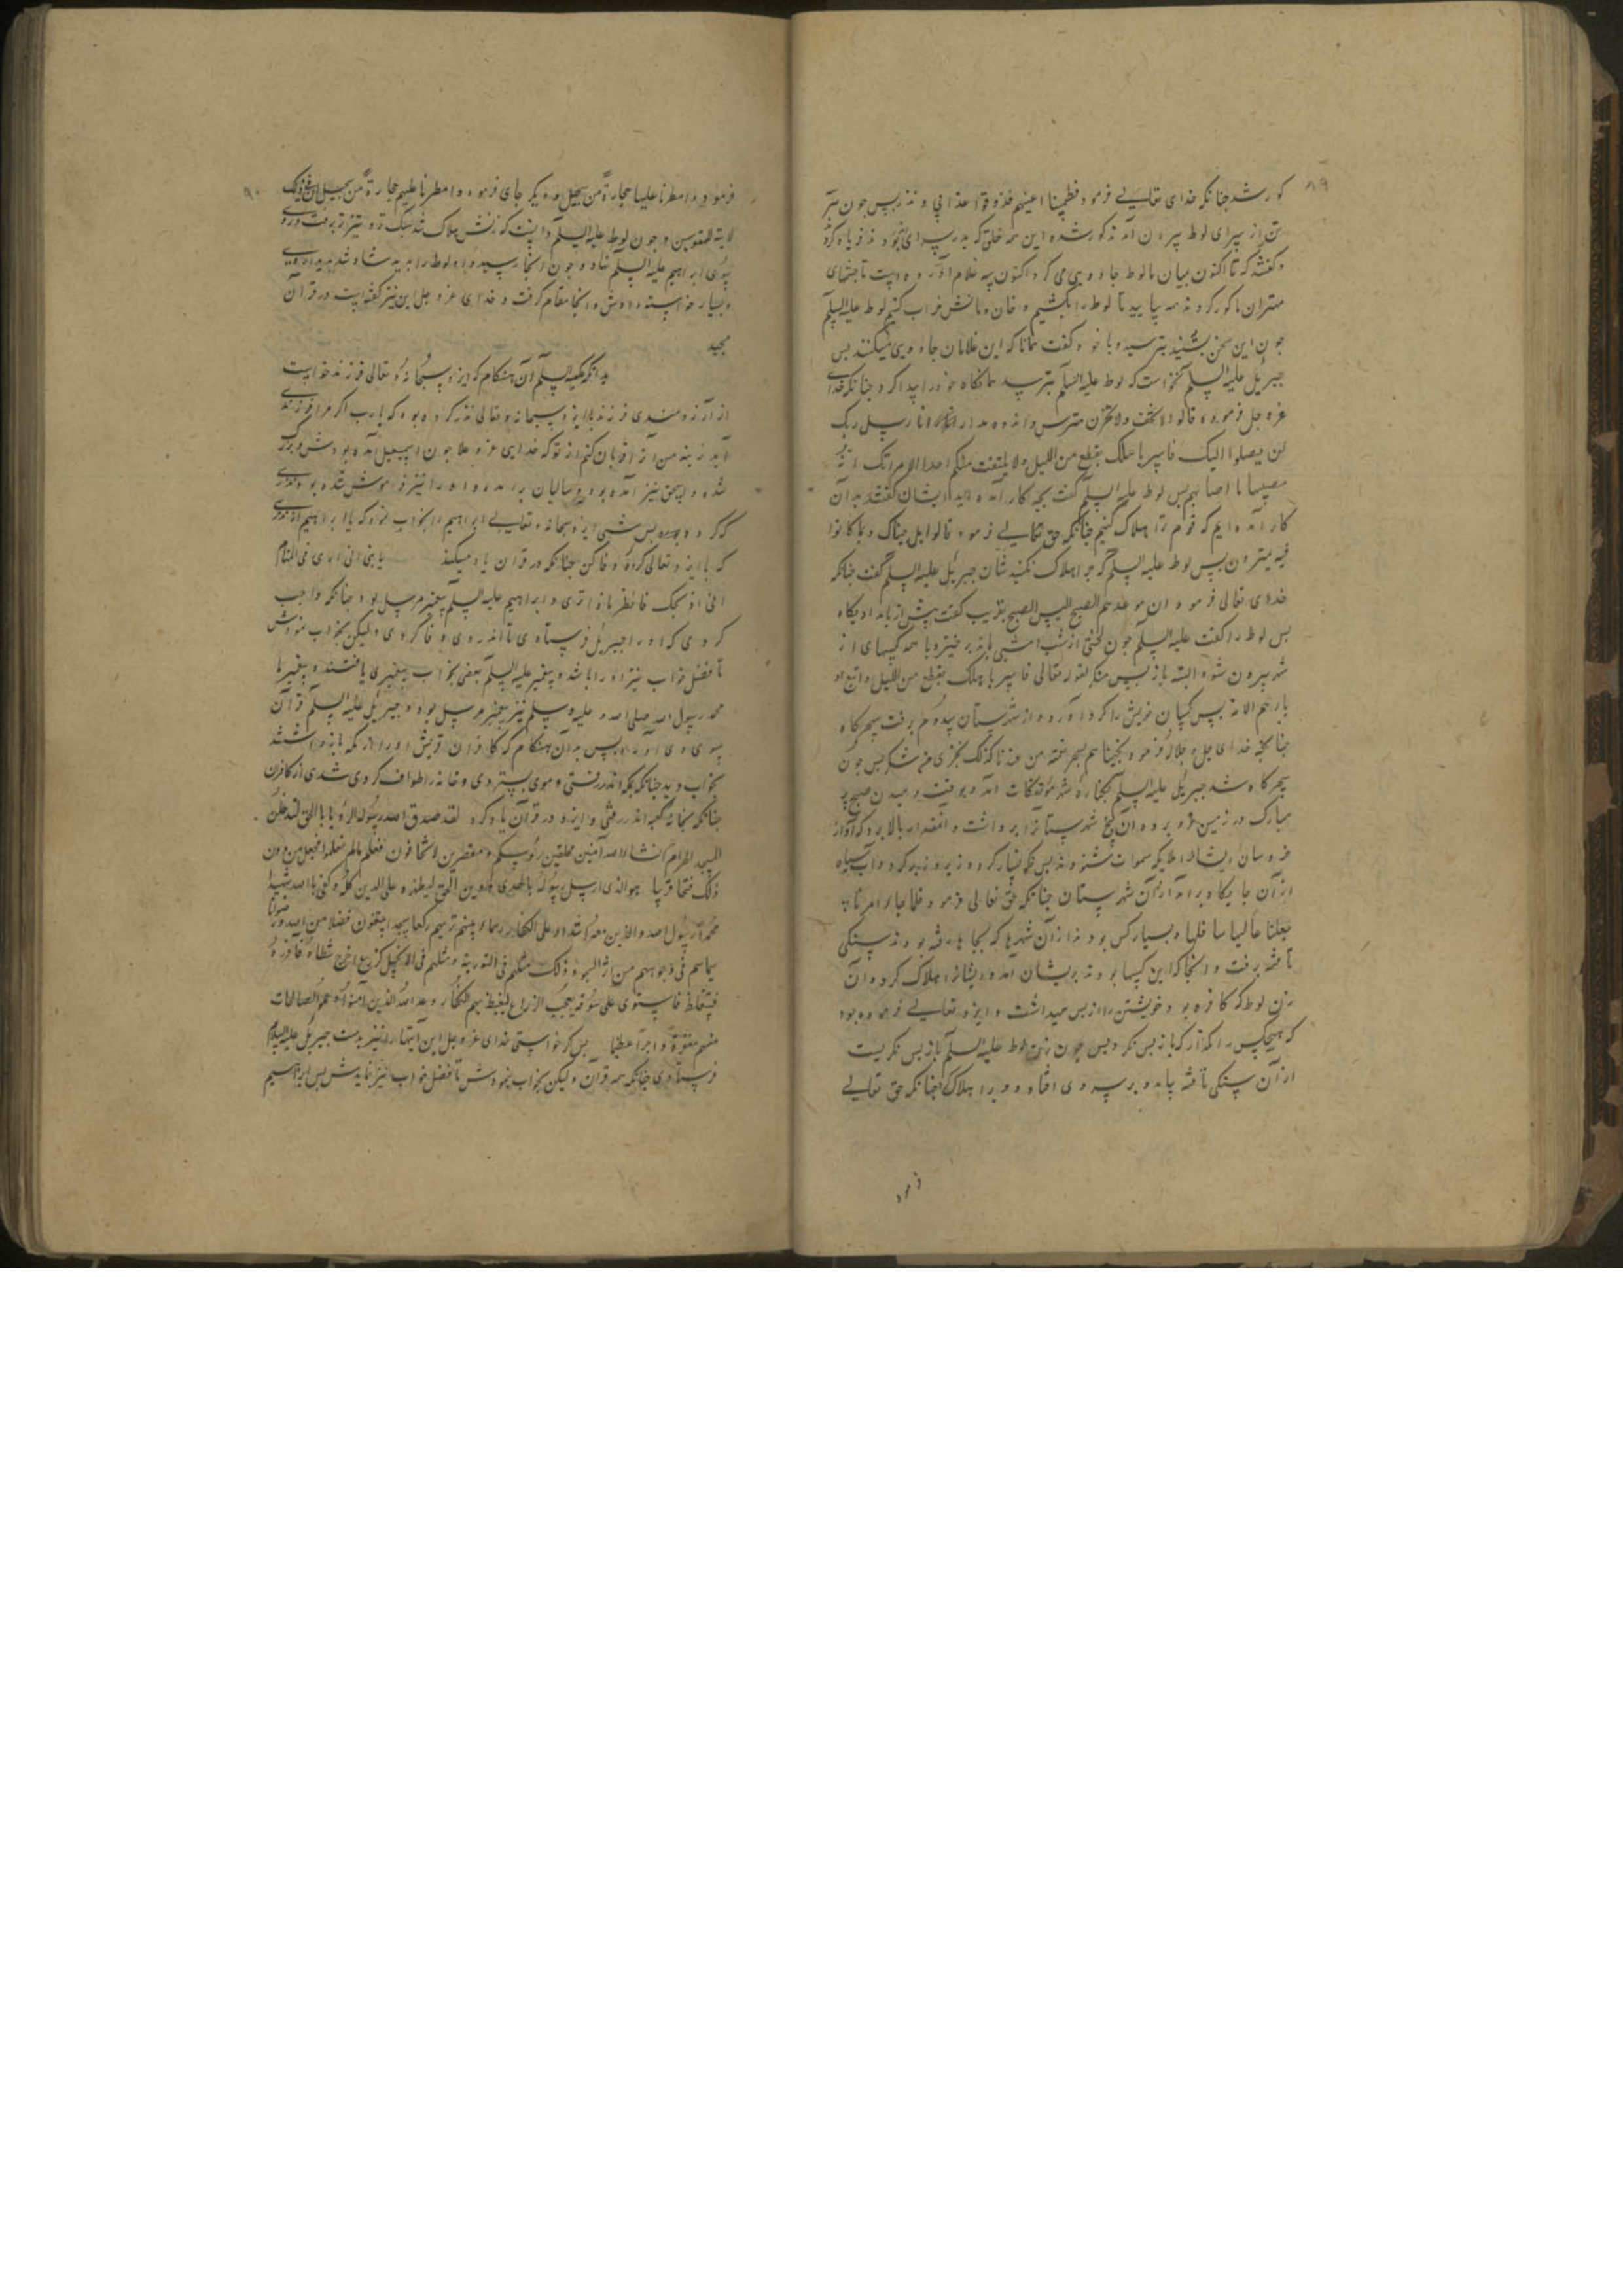 ۸۹
کور شد جنانکه خدای تعالی فرمود فطمسنا اعینهم فذوقوا عذابی و نذر پس جون
تن از سرای لوط بیرون آمدند کور شده این همه خلق که بدر سرای بودند فریاد کردند
و کفتند که تا اکنون میان ما لوط جادویی می کرد اکنون سه غلام آورده است تا جشمهای
مهتران ما کور کردند همه بیایید تا لوط را بکشیم و خان و مانش خراب کنیم لوط علیه السلم
جون این سخن بشنید بترسید و با خود کفت همانا که این غلامان جادویی میکنند بس
جبریل علیه السلم نخواست که لوط علیه السلم بترسد همانکاه خود را پیدا کرد جنانکه خدای
عز و جل فرمود قالوا لا تخف ولا تحزن مترس و اندوه مدار انا رسل ربک
لن یصلوا الیک فاسر باهلک بقطع من اللیل ولا یلتفت منکم احد الا امراتک انه
مصیبها ما اصابهم بس لوط علیه السلم کفت بجه کار آمده اید ایشان کفتند بدان
کار آمده ایم که قوم ترا هلاک کنیم جنانکه حق تعالی فرمود قالوا بل جئناک بما کانوا
فیه یمترون بس لوط علیه السلم کفت جرا هلاک نکنید شان جبریل علیه السلم کفت جنانکه
خدای تعالی فرمود ان موعدهم الصبح الیس الصبح بقریب کفت بیش از بامداد بکاه
بس لوط را کفت علیه السلم جون لختی از شب بر خیز و با همه کسهای از
شهر بیرون شو و البته باز بس منکر لقوله تعالی فاسر باهلک بقطع من اللیل و اتبع
ادبارهم الایة بس کسان خویش را کرد آورد و از شهرستان بیرون برفت سحرکاه
جنانکه خدای جل و جلاله فرمود نجیناهم بسحر نعمة من عندنا کذلک نجزی من شکر بس جون
سحرکاه شد جبریل علیه السلم بکناره شهر مؤتفکات آمد و بوقت دمیدن صبح پر
مبارک در زمین فرو برد و آن پنج شهرستانرا برداشت و آنقدار بالا برد که آواز
خروسان ایشان ملایکه سموات شنودند بس نکونسار کرد و زیر و زبر کرد و آب سیاه
از آن جایکاه برآمد از آن شهرستان جنانکه حق تعالی فرمود فلما جاء امرنا
جعلنا عالیها سافلها و بسیار کس بودند از آن شهرها که بجایها رفته بودند سنکی
تافته برفت و آنجا که این کسها بودند بریشان آمد و ایشانرا هلاک کرد و آن
زن لوط که کافره بود و خویشتن را از بس میداشت و ایزد تعالی فرموده بود
که هیجکس را مکذار که باز بس نکرد بس جون زن لوط علیه السلم باز بس نکریست
از آن سنکی تافته بیامد و بر سر وی افتاد و ویرا هلاک کرد جنانکه حق تعالی
فرمود
۹۰
فرمود و امطرنا علیها حجارة من سجیل و دیکر جای فرمود و امطرنا علیهم حجارة من سجیل ان فی ذلک
لایة للمتوسمین و جون لوط علیه السلم دانست که زنش هلاک شد تیز برفت و روی
بسوی ابراهیم علیه السلم نهاد و جون آنجا رسید و لوط را بدید شاد شد بدیدار وی
و بسیار خواسته دادش و آنجا مقام کرفت و خدای عز و جل این نیز کفته است در قرآن
مجید
بدانکه علیه السلم آن هنکام که ایزد سبحانه و تعالی فرزند خواست
از آرزومندی فرزند با ایزد سبحانه و تعالی نذر کرده بود که یا رب اکر مرا فرزندی
آید نرینه من او را قربان کنم از تو که خدایی عز و علا جون اسمعیل آمده بودش و بزرک
شده و اسحق نیز آمده بود و سالیان برآمده و او را نیز فراموش شده بود نذری
که کرده بود بس شبی ایزد سبحانه و تعالی ابراهیم را بخواب نمود که یا ابراهیم آن نذری
که با ایزد تعالی کرده وفا کن جنانکه در قرآن یاد میکند یا بنی انی اری فی المنام
انی اذبحک فانظر ماذا تری و ابراهیم علیه السلم بیغمبر مرسل بود جنانکه واجب
کردی که او را جبریل فرستادی تا نذر وی وفا کردی ولیکن بخواب نمودش
تا فضل خواب نیز او را باشد و بیغمبر علیه السلم بعضی بخواب بیغمبری یافتند و بیغمبر ما
محمد رسول الله صلی الله علیه و سلم نیز بیغمبر مرسل بود و جبریل علیه السلم قرآن
بسوی وی آورد بس بدان هنکام که کافران قریش او را از مکه باز داشتند
بخواب دید جنانکه بمکه اندر رفتی و موی بستردی و خانه را طواف کردی شدی از کافران
جنانکه بخانه کعبه اندر رفتی و ایزد در قرآن یاد کرد لقد صدق الله رسوله الرؤیا بالحق لتدخلن
المسجد الحرام ان شاء الله آمنین محلقین رؤسکم و مقصرین لا تخافون فعلم ما لم تعلموا فجعل من دون
ذلک فتحا قریبا هو الذی ارسل رسوله بالهدی و دین الحق لیظهره علی الدین کله و کفی بالله شهیدا
محمد رسول الله و الذین معه اشداء علی الکفار رحماء بینهم تریهم رکعا سجدا یبتغون فضلا من الله و رضوانا
سیماهم فی وجوههم من اثر السجود ذلک مثلهم فی التوریة و مثلهم فی الانجیل کزرع اخرج شطاه فآزره
فاستغلظ فاستوی علی سوقه یعجب الزراع لیغیظ بهم الکفار وعد الله الذین آمنوا و عملوا الصالحات
منهم مغفرة و اجرا عظیما بس کر خواستی خدای عز و جل این آیتها را نیز بدست جبریل علیه السلم
فرستادی جنانکه همه قرآن ولیکن بخواب نمودش تا فضل خواب نیز نمایدش بس ابراهیم